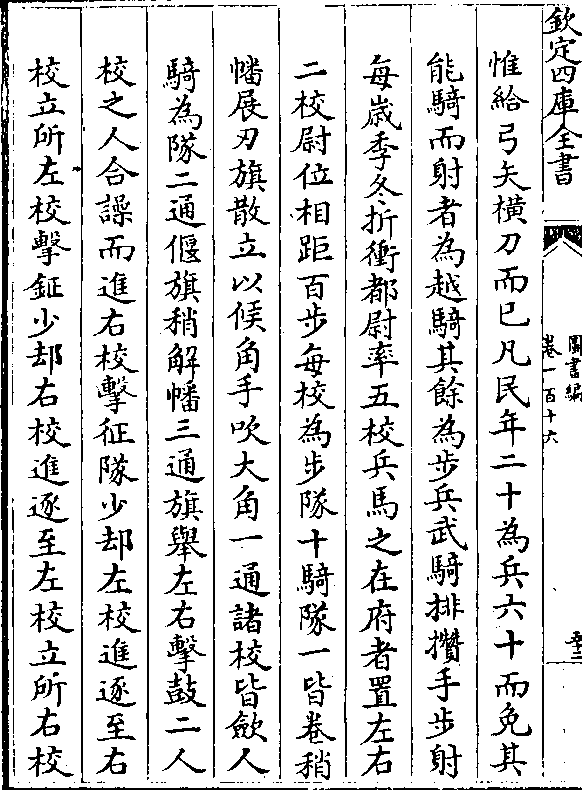 欽定四庫全書
圖書編
卷一百十六
惟給弓矢橫刀而已凡民年二十為兵六十而免其
能騎而射者為越騎其餘為步兵武騎排䂎手步射
每歲季冬折衝都尉率五校兵馬之在府者置左右
二校尉位相距百步每校為步隊十騎隊一皆卷稍
幡展刃旗散立以俟角手吹大角一通諸校皆歛人
騎為隊二通偃旗稍解幡三通旗舉左右擊鼓二人
校之人合譟而進右校擊征隊少却左校進逐至右
校立所左校擊鉦少却右校進逐至左校立所右校